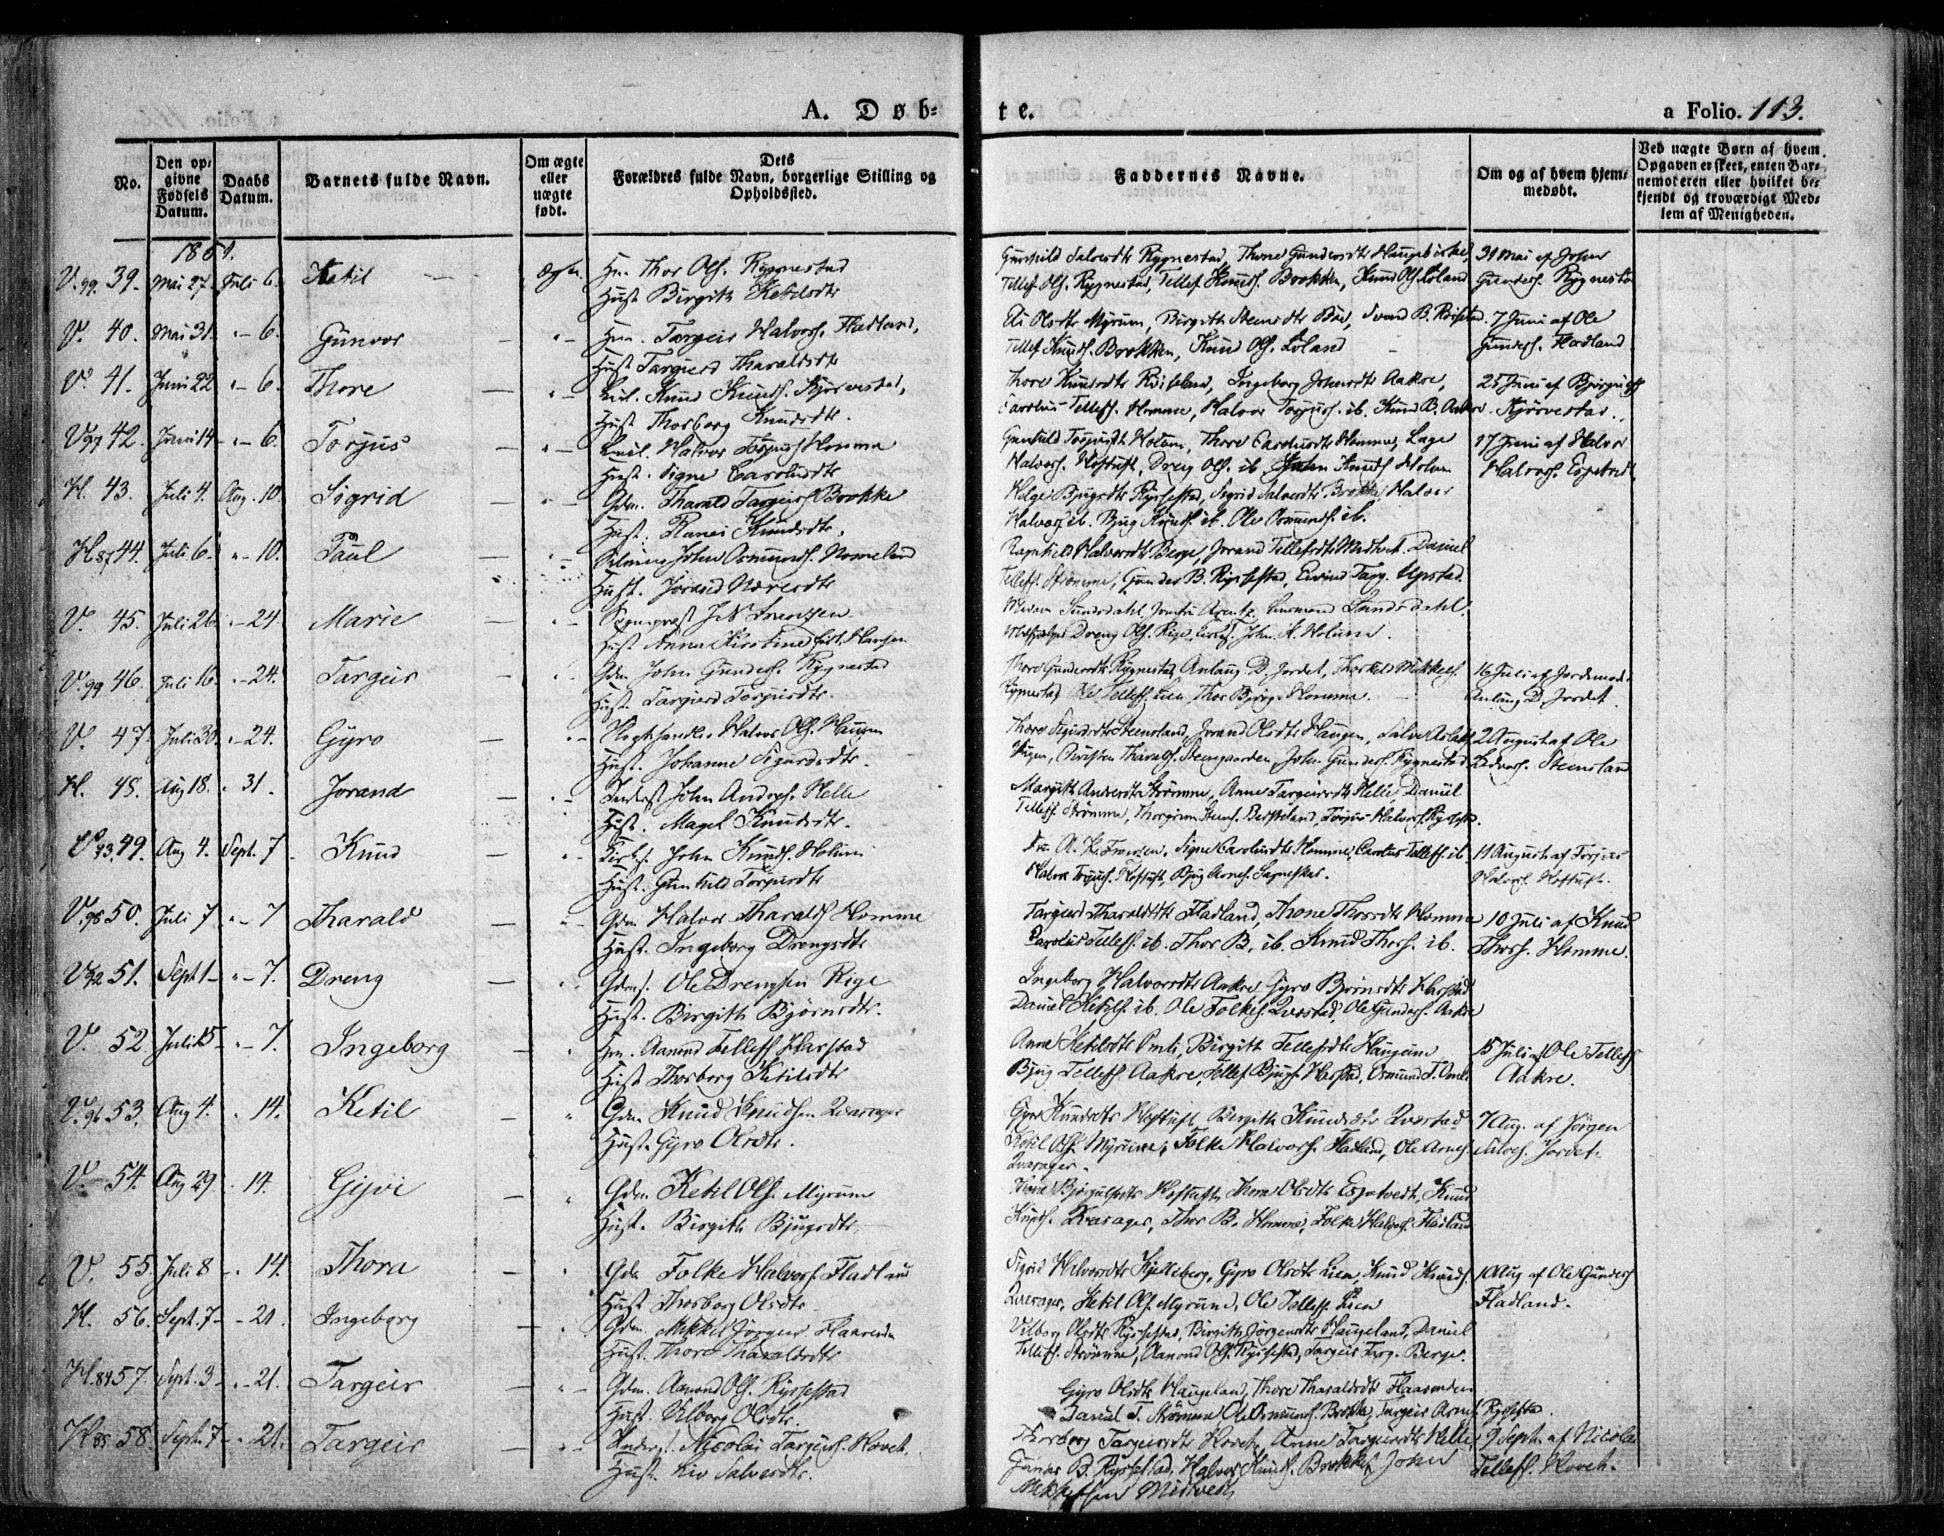 A. Døb-
te.
a Folio. 113.
No.
Den opgivne Fødsels Datum.
Daabs Datum.
Barnets fulde Navn.
Om ægte eller uægte født.
Dets Forældres fulde Navn, borgerlige Stilling og Opholdssted.
Faddernes Navne.
Om og af hvem hjemmedøbt.
Ved uægte Børn af hvem Opgaven er skeet, enten Barnemoderen eller hvilket bekjendt og troværdigt Medlem af Menigheden.
1851.
V. 99 39. Mai 27. Juli 6. Ketil — Ægte. Thor Ols. Rygnestad
Hust Birgith Ketilsdtr
Gunhild Salvesdtr Rygnestad, Thone Gundersdtr Haugebirke,
Tellef Ols. Rygnestad, Tellef Knuds. Brokke, Knud Ols. Løland
31 Mai af John
Gunders. Rygnestad
V. 40. Mai 31. " - 6. Gunvor " — Targeir Halvors. Fladland,
Hust Targierd Tharaldsdtr
Olsdtr Myrum, Birgith
Tellef Knuds. Brokke, Knud Ols. Løland
7 Juni af Ole
Gunders. Fladland
V. 41. Juni 22 " - 6. Thore — " — Knud Knuds. Kjørvestad,
Hust Thorborg Knudsdtr.
Thore Knudsdtr Ingeborg Johnsdtr Aakre,
Carolus Tellefs. Homme, Halvor Torjus. ib. Knud B. Aakre
25 Juni af
Kjørvestad.
V. 97 42. Juni 14 " - 6. Torjus " — Halvor Torjus Homme
Hust. Signe Carolusdtr
Gunhild Torjusdtr Holum, Thore Carolusdtr Homme,
Halvors. Hoftuft, Dreng Ols. ib. John Knuds Holum
17 Juni af Halvor
Halvors.
H. 43. Juli 4. Aug. 10. Sigrid " Gdm. Tharald Targeirs. Brokke
Hust. Ranei Knudsdtr.
Helge Bjugsdtr Rysstad, Sigrid Salvesdtr Brokke, Halvor
Halvors ib. Bjug Knuds. ib. Ole Osmunds. ib.
H. 87 44. Juli 6. " - 10. Paul — " John Osmunds. Nomeland
Hust. Jorand
Ragnhild Halvorsdtr Berge, Jorand Tellefsdtr Daniel
Tellefs. Strømme, Gunder B. Rysstad, Eivind Targ. Upstad.
V. 45. Juli 26. " - 24. Marie — " Sognepræst
Hust Anna Kirstine
Sundsdahl,
Dreng Ols. Rige, John K. Holum.
V. 99 46. Juli 16. " - 24. Targeir — " Gdm John Gunders. Rygnestad
Hust. Targierd Torjusdtr.
Thore Gundersdtr Rygnestad, Anlaug D. Jordet, Thorkild Mikkels.
Rygnestad Ole Tellefs. Lien, Thor Bjørg. Homme. —
16 Juli af Jordemod.
Anlaug D. Jordet.
V. 47. Juli 30. " - 24. Gyro — " Halvor Ols. Haugen
Hust. Johanne Sigurdsdtr.
Thore Sigurdsdtr Steensland, Jorand Olsdtr Haugen,
Haugen, Christen Tharalds. Steengaarden, John Gunders. Rygnestad
2 August af Ole
Steensland
H. 48. Aug 18. " 31. Jorand — " — Inderst John Anders. Helle
Hust. Magel Knudsdtr.
Margith Andersdtr Strømme, Anne Targeirsdtr Helle, Daniel
Tellefs. Strømme, Thorgrim Torjus Halvors. Rysstad.
V. 93 49. Aug 4. Sept. 7. Knud — " Kirks. John Knuds. Holum
Hust. Gunhild Torjusdtr
Signe Carolusdtr Homme, Carolus Tellefs. ib.
Halvor Torjus. Hoftuft, Bjug Arnes.
11 August af Torjus
Halvors. Hoftuft.
V. 98 50. Juli 7 " - 7 Tharald — " Gdm Halvor Tharalds Homme
Hust. Ingeborg Drengsdtr
Targierd Tharaldsdtr Fladland, Thone Thorsdtr Homme
Carolus Tellefs. ib. Thor B. ib. Knud Thors. ib.
10 Juli af Knud
Thors. Homme.
V. 92 51. Sept. 1 — " - 7. Dreng — " Gdm. Ole Drengsen Rige
Hust. Birgith Bjørnsdtr.
Ingeborg Halvorsdtr Aakre, Gyro Bjørnsdtr Harstad
Daniel Ketils. ib. Ole Folkes. Qvestad, Ole Gunders. Aakre
V. 52 Juli 15 — " - 7. Ingeborg — " Gm. Aamund Tellefs Harstad
Hust Thorborg Ketilsdtr
Anne Ketilsdtr Omli, Birgith Tellefsdtr Haugum
Bjug Tellefs. Aakre, Tellef Bjugs. Harstad, Osmund T. Omli
15 Juli af Ole Tellefs
Aakre.
V. 96 53. Aug 4. " 14. Ketil — " Gdm Knud Knudsen Qvarager
Hust. Gyro Olsdtr.
Gyro Knudsdtr Hoftuft, Birgith Knudsdtr Qvestad
Ketil Ols. Myrum, Folke Halvors. Fladland, Ole Arnes.
Qvarager.
7 Aug. af Jørgen
Salves. Jordet.
V. 54. Aug 29 " 14. Gyvi — " Gdm. Ketil Ols. Myrum
Hust. Birgith Bjugsdtr.
Bjørgulfsdtr Hoftuft, Thore Olsdtr Espetvedt, Knud
Knuds. Qvarager, Thor B. Homme, Folke Halvors. Fladland
V. 55. Juli 8 — " 14. Thora — " Gdm Folke Halvors. Fladland
Hust. Thorborg Olsdtr
Sigrid Halvorsdtr Kjelleberg, Gyro Olsdtr Lien, Knud Knuds.
Qvarager, Ketil Ols. Myrum, Ole Tellefs. Lien
10 Aug af Ole Gunders
Fladland.
H. 56. Sept. 7 — " 21. Ingeborg — " Gdm. Mikkel Jørgens Flaarenden
Hust. Thore Tharaldsdtr
Vilborg Olsdtr Rysstad, Birgith Jørgensdtr Haugeland, Daniel
Tellefs. Strømme, Aamond Ols. Rysstad, Targeir Targ. Berge.
H. 84 57. Sept. 3 — " - 21. Targeir — " — Gdm. Aamond Ols. Rysstad
Hust. Vilborg Olsdtr.
Gyro Olsdtr Haugeland, Thore Tharaldsdtr Flaarenden
Daniel T. Strømme, Ole Osmunds. Brokke, Targeir Arnes. Rysstad
H. 85 58. Sept. 7 — " 21. Targeir — " — Inderst. Nicolai Targeirs. Hovet.
Hust. Liv Salvesdtr.
Thorborg Targeirsdtr Hovet, Anne Targeirsdtr Helle,
Gunder B. Rysstad, Halvor Knuds. Brokke, John
Mikkelsen
9 Sept. af Nicolai
Tellefs. Hovet.